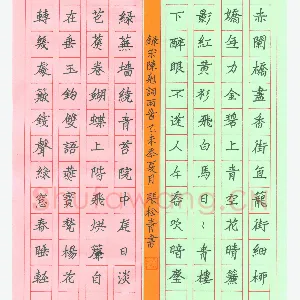 赤闌橋盡香街直籠街細柳
嬌無力金碧上青空花晴簾
影紅黃衫飛白馬日日青樓
下醉眼不逢人午香吹暗塵
錄宋陳剋詞兩首乙未春夏月 張松青書
綠蕪墻繞青苔院中庭日淡
芭蕉卷蝴蝶上階飛烘簾自
在垂玉鉤雙語燕寶甃楊花
轉幾處簸錢聲綠窗春睡輕